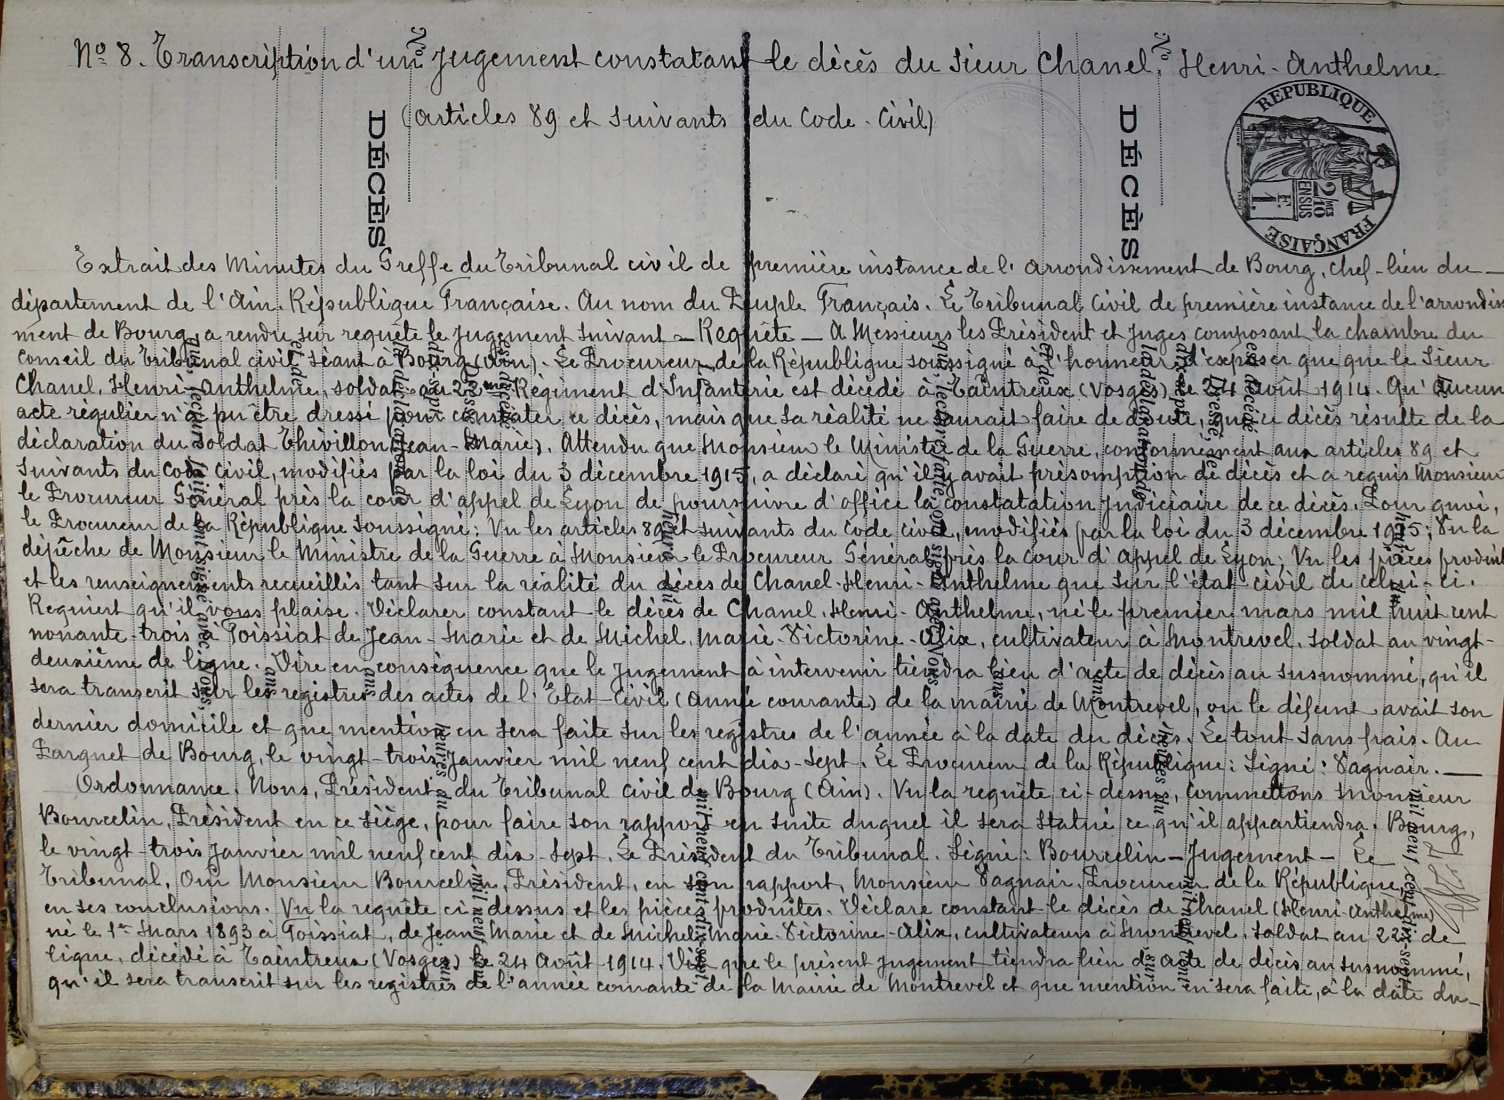 Nº 8. Transcription d'un Jugement constatant le décès du sieur Chanel, Henri-Anthelme
(articles 89 et suivants du Code Civil)
DÉCÈS
DÉCÈS
REPUBLIQUE FRANÇAISE
2/10 EN SUS
1 F.
Extrait des Minutes du Greffe du Tribunal civil de première instance de l'arrondissement de Bourg, chef-lieu du
département de l'Ain. République Française. Au nom du Peuple Français. Le Tribunal civil de première instance de l'arrondisse
ment de Bourg, a rendu sur requête le jugement suivant — Requête — A Messieurs les Président et Juges composant la chambre du
conseil du tribunal civil séant à Bourg (Ain). Le Procureur de la République soussigné a l'honneur d'exposer que que le Sieur
Chanel, Henri-Anthelme, soldat au 22e Régiment d'Infanterie est décédé à Taintreux (Vosges) le 24 Août 1914. Qu'aucun
acte régulier n'a pu être dressé pour constater ce décès, mais que sa réalité ne saurait faire de doute, que ce décès résulte de la
déclaration du soldat Thivillon (Jean-Marie). Attendu que Monsieur le Ministre de la Guerre, conformément aux articles 89 et
suivants du Code Civil, modifiés par la loi du 3 décembre 1915, a déclaré qu'il y avait présomption de décès et a requis Monsieur
le Procureur Général près la cour d'appel de Lyon de poursuivre d'office la constatation judiciaire de ce décès. Pour quoi,
le Procureur de la République soussigné: Vu les articles 89 et suivants du Code civil, modifiés par la loi du 3 décembre 1915; Vu la
dépêche de Monsieur le Ministre de la Guerre à Monsieur le Procureur Général près la cour d'appel de Lyon; Vu les pièces produites
et les renseignements recueillis tant sur la réalité du décès de Chanel Henri-Anthelme que sur l'état civil de celui-ci.
Requiert qu'il vous plaise. Déclarer constant le décès de Chanel, Henri-Anthelme, né le premier mars mil huit cent
nonante-trois à Foissiat de Jean-Marie et de Michel, Marie-Victorine-Alix, cultivateur à Montrevel, soldat au vingt-
deuxième de ligne. Dire en conséquence que le Jugement à intervenir tiendra lieu d'acte de décès au susnommé, qu'il
sera transcrit sur les registres des actes de l'Etat-Civil (année courante) de la mairie de Montrevel, où le défunt avait son
dernier domicile et que mention en sera faite sur les registres de l'année à la date du décès. Le tout sans frais. Au
Parquet de Bourg, le vingt-trois Janvier mil neuf cent dix-sept. Le Procureur de la République: Signé: Pagnair.
Ordonnance: Nous, Président du Tribunal civil de Bourg (Ain). Vu la requête ci-dessus, Commettons Monsieur
Bourcelin, Président en ce siège, pour faire son rapport en suite duquel il sera statué ce qu'il appartiendra. Bourg,
le vingt-trois Janvier mil neuf cent dix-sept. Le Président du Tribunal. Signé: Bourcelin — Jugement — Le
Tribunal, Ouï Monsieur Bourcelin, Président, en son rapport, Monsieur Pagnair, Procureur de la République,
en ses conclusions. Vu la requête ci-dessus et les pièces produites. Déclare constant le décès de Chanel (Henri Anthelme)
né le 1er Mars 1893 à Foissiat, de Jean Marie et de Michel Marie-Victorine-Alix, cultivateurs à Montrevel, soldat au 22e de
ligne, décédé à Taintreux (Vosges) le 24 Août 1914. Dit que le présent Jugement tiendra lieu d'acte de décès au susnommé,
qu'il sera transcrit sur les registres de l'année courante de la Mairie de Montrevel et que mention en sera faite, à la date du